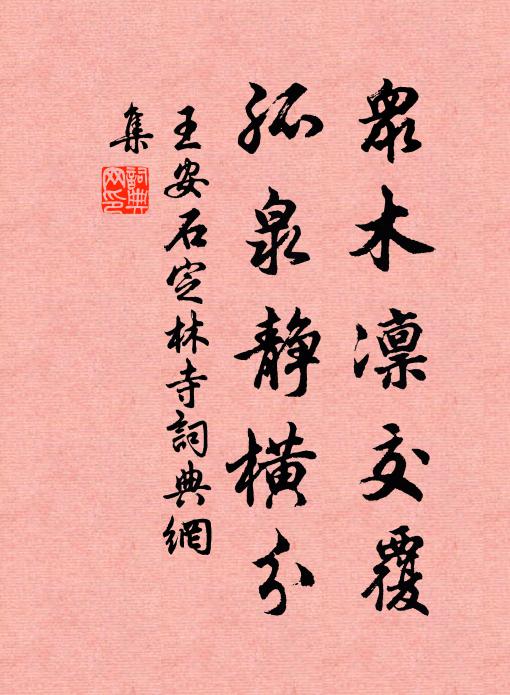 眾木凜交覆
孤泉静橫分
王安石定林寺詞典網
集
詞典网印